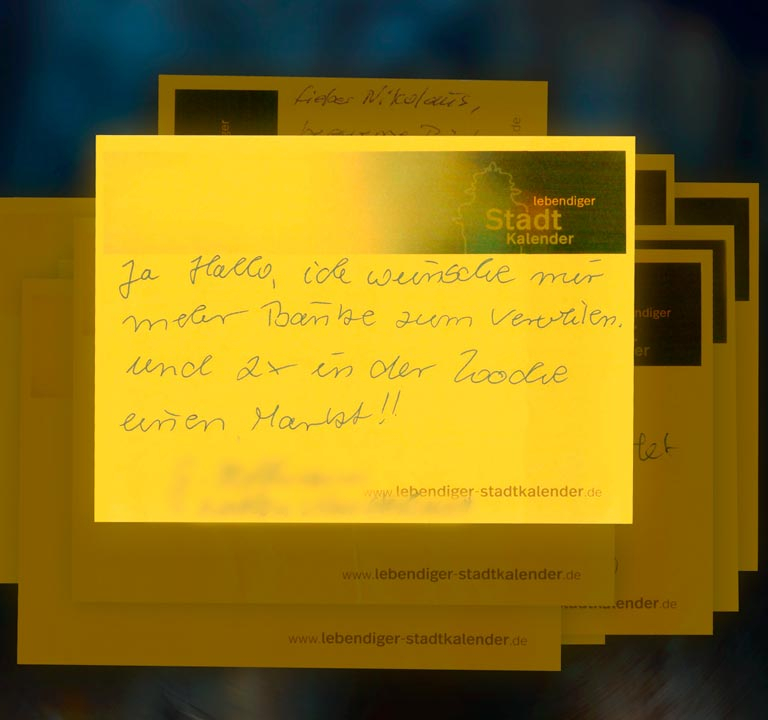 Lieber Nikolaus,
lebendiger
Stadt
Kalender
Ja Hallo, ich wünsche mir
mehr Bänke zum Verweilen.
Und 2x in der Woche
einen Markt!!
www.lebendiger-stadtkalender.de
www.lebendiger-stadtkalender.de
www.lebendiger-stadtkalender.de